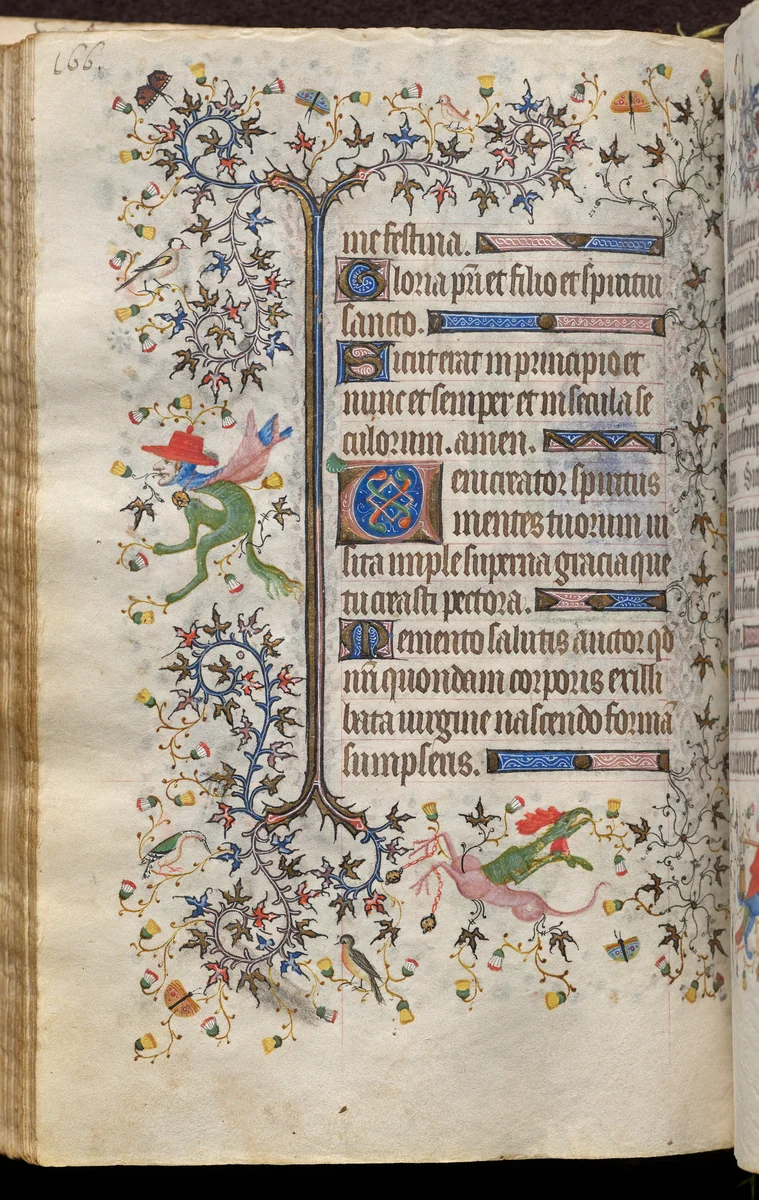 166.
me festina.
Gloria pr̄i et filio et spiritui
sancto.
Sicut erat in principio et
nunc et semper et in secula se
culorum. amen.
Veni creator spiritus
mentes tuorum ui
sita imple superna gracia que
tu creasti pectora.
Memento salutis auctor qd
nr̄i quondam corporis ex illi
bata uirgine nascendo formā
sumpseris.